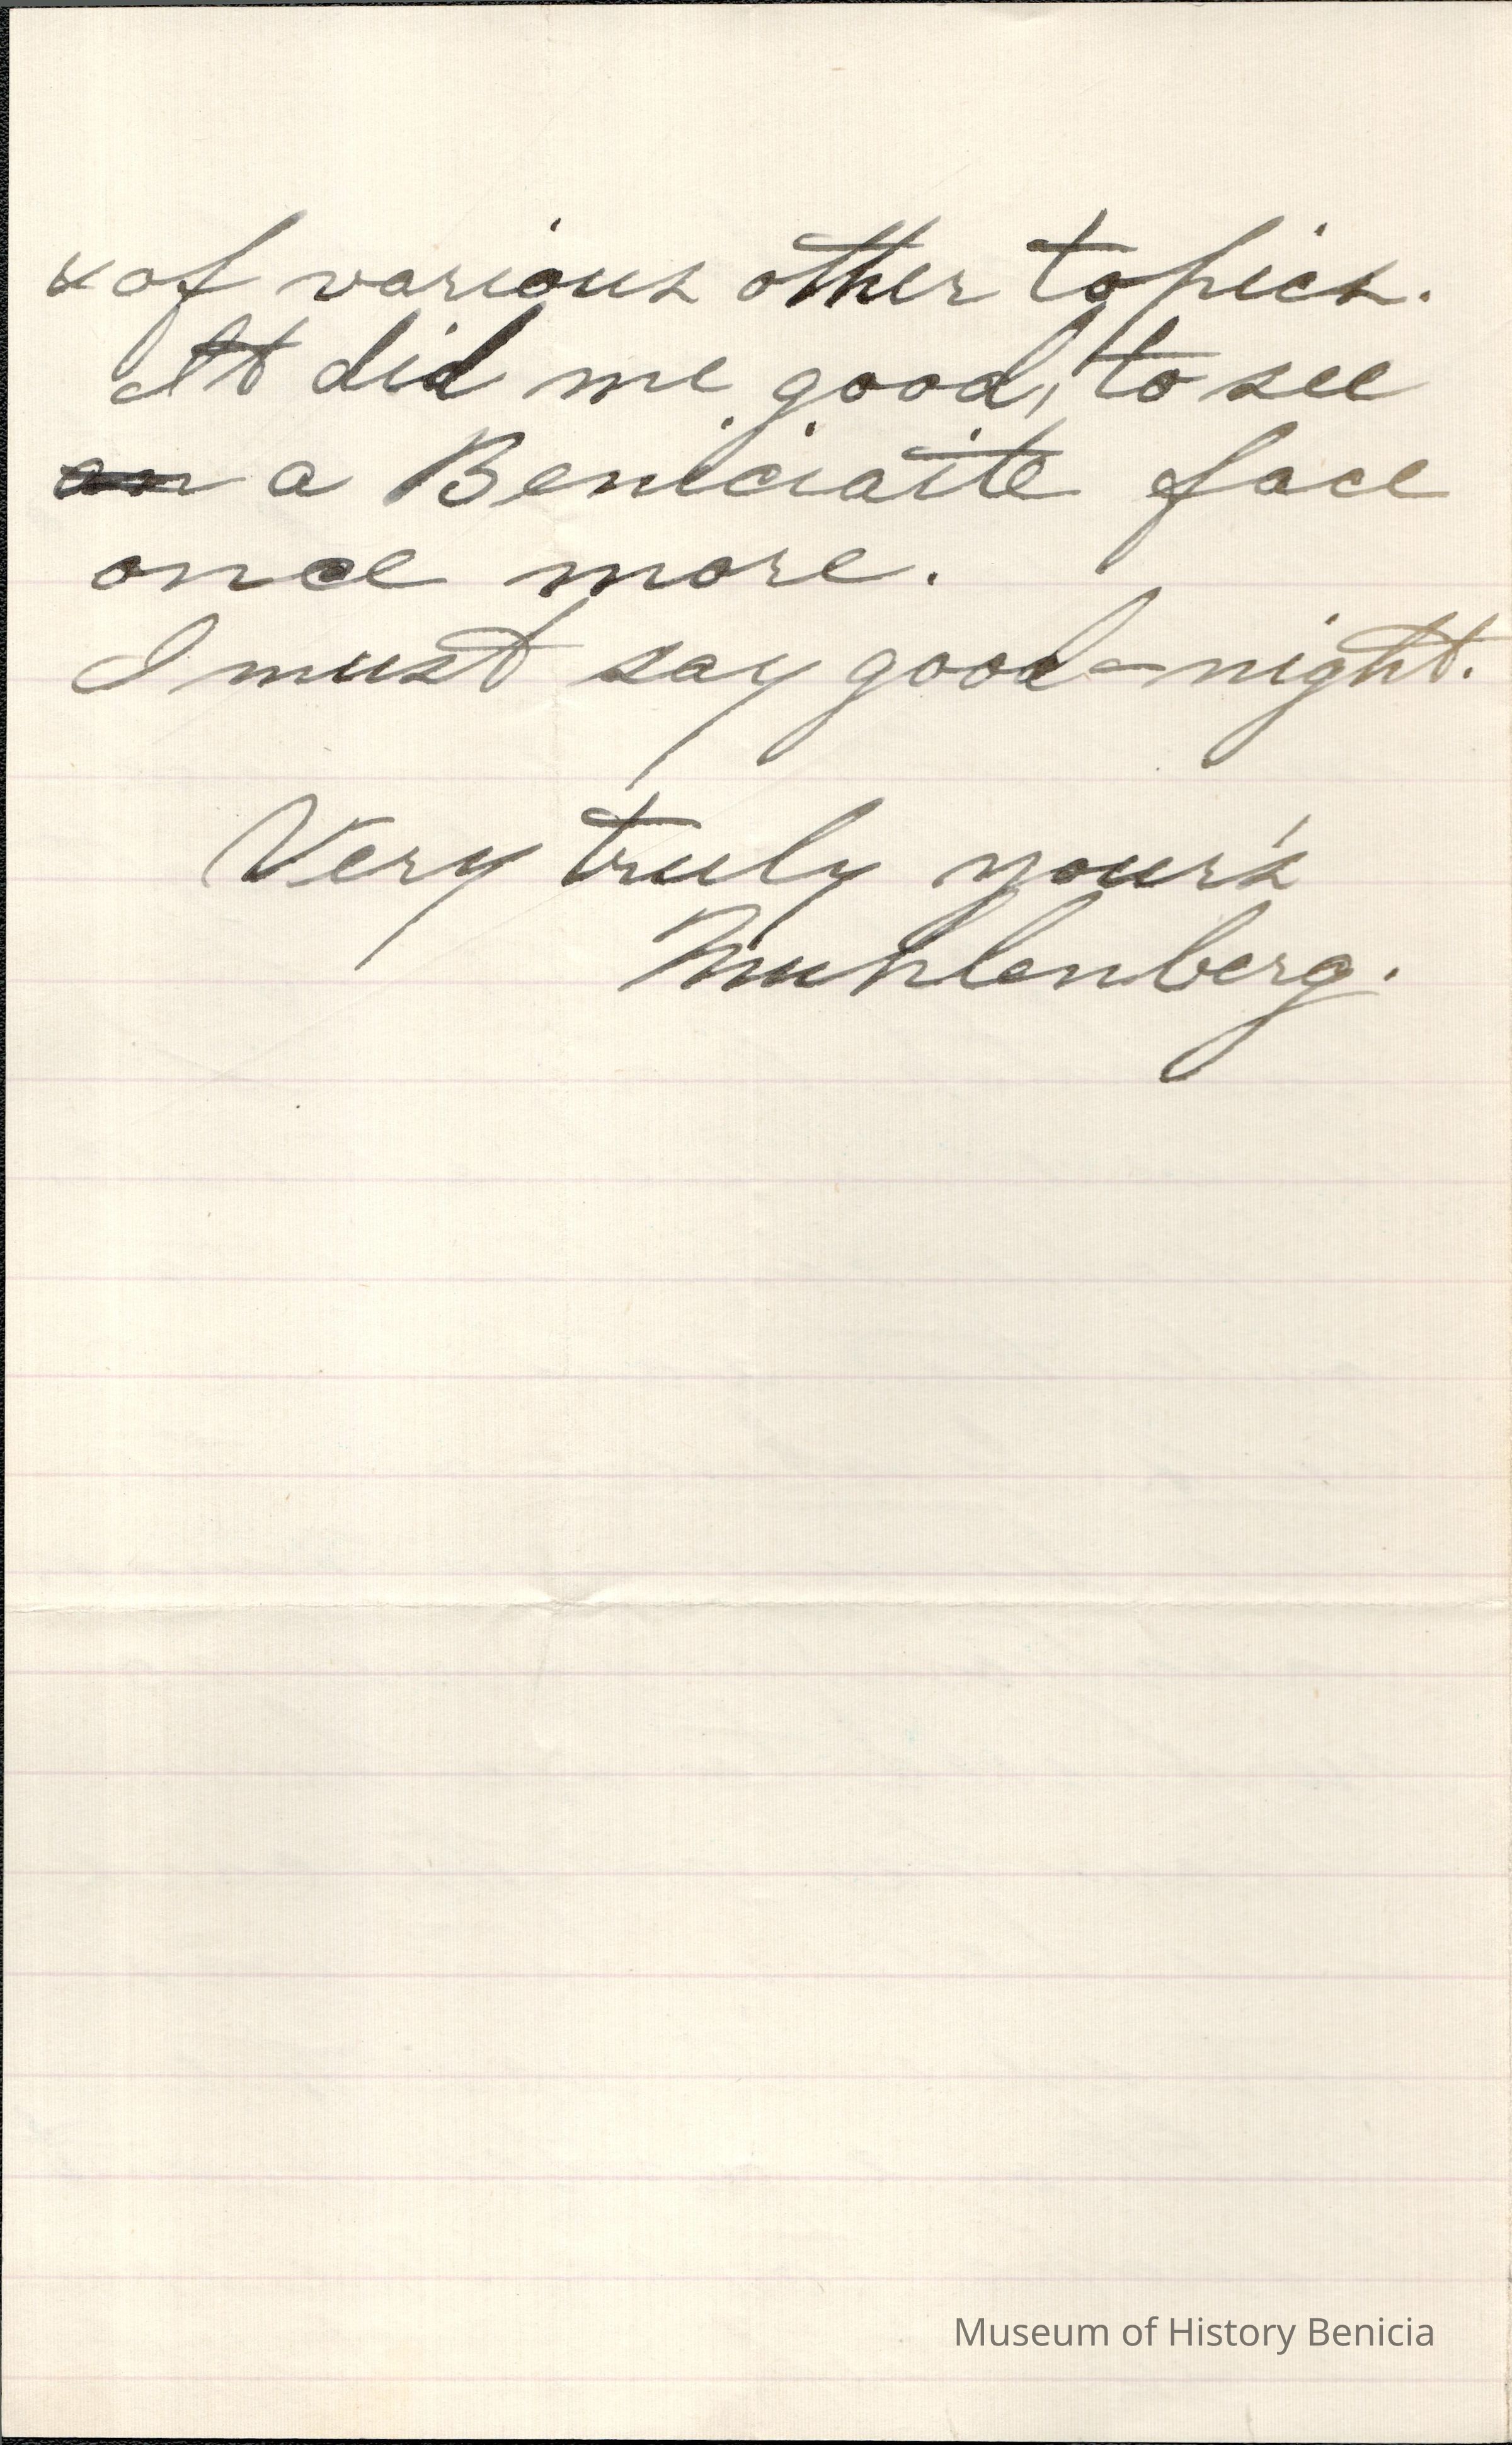 & of various other topics.
It did me good, to see
an a Beniciaite face
once more.
I must say good-night.
Very truly your's
Muhlenberg.
Museum of History Benicia